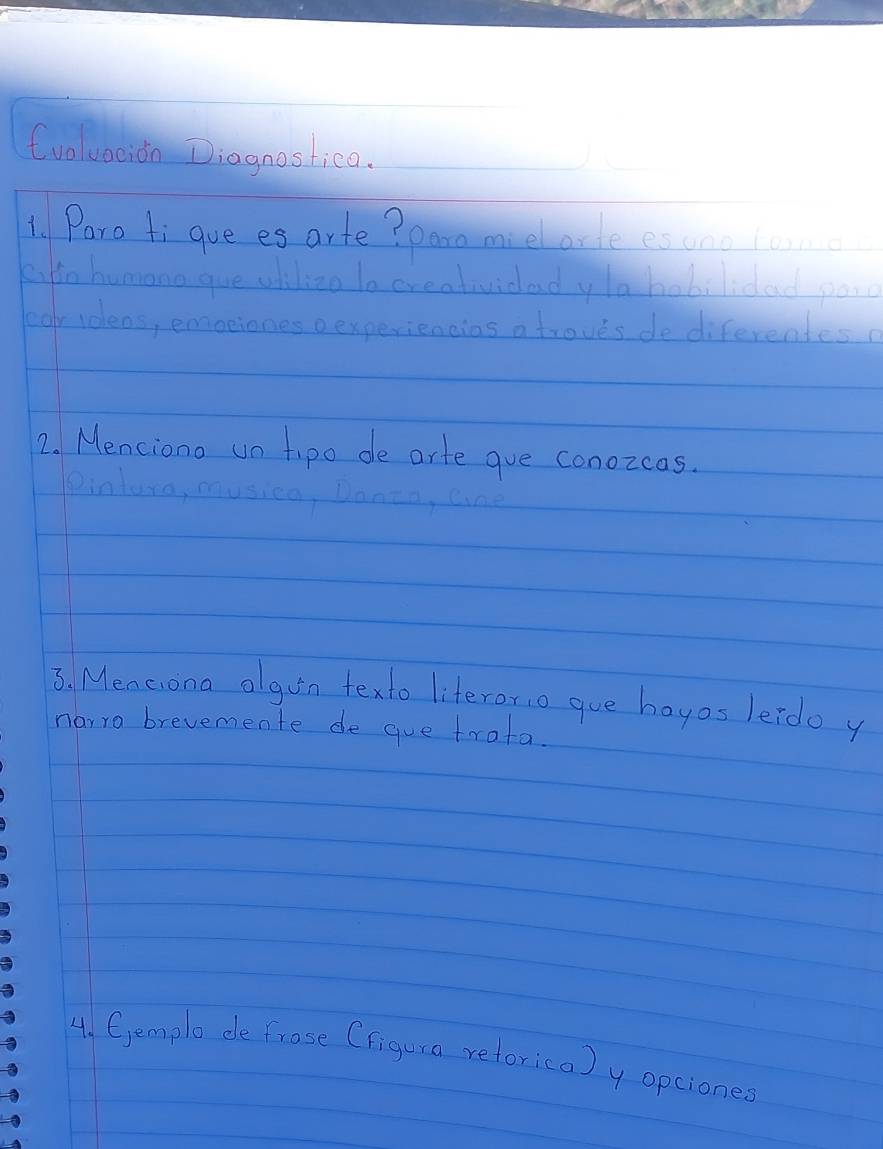 Evaluación Diagnostica.
1. Para ti que es arte? para mi el arte es una forma
humana que utiliza la creatividad y la habilidad para
ideas, emociones o experiencias a través de diferentes
2. Menciona un tipo de arte que conozcas.
Pintura, musica, Danza, cine
3. Menciona algún texto literario que hayas leído y
narra brevemente de que trata.
4. Ejemplo de frase (figura retorica) y opciones